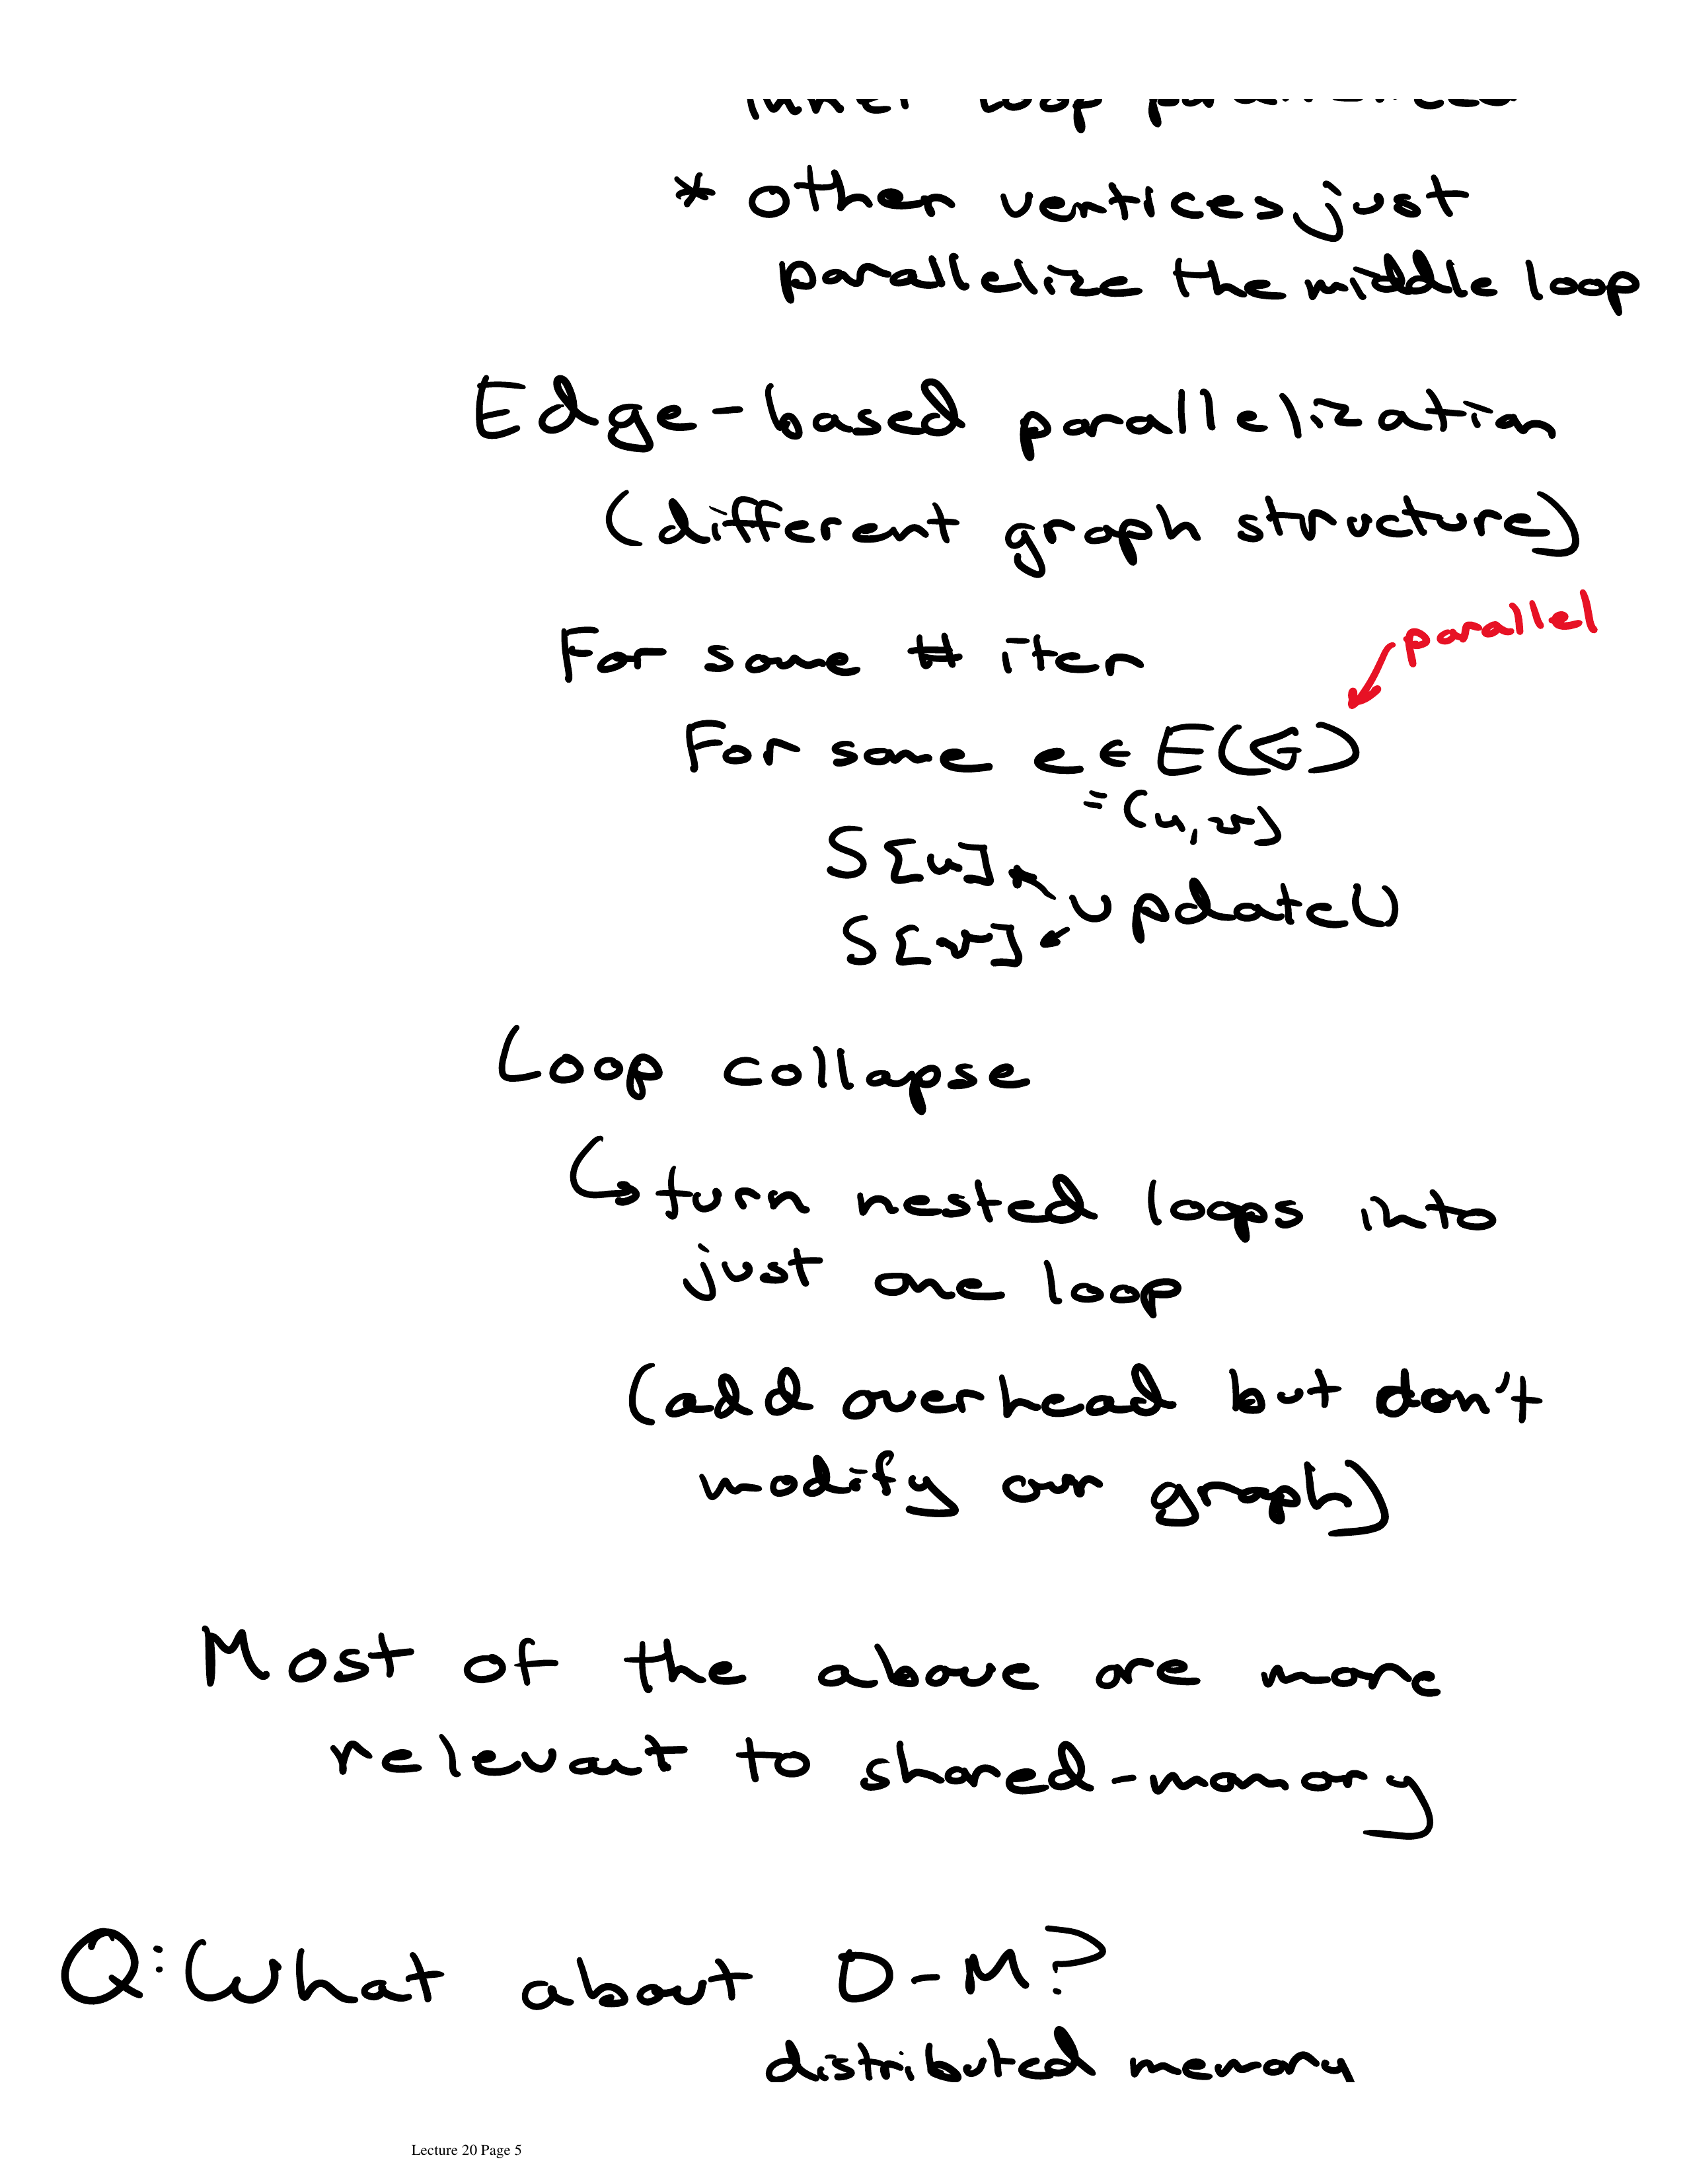 inner loop
* other vertices, just
parallelize the middle loop
Edge-based parallelization
(different graph structure)
parallel
For some # iter
For some e ∈ E(G)
= (u, v)
S[u]
update()
S[v]
Loop collapse
↳ turn nested loops into
just one loop
(add overhead but don't
modify our graph)
Most of the above are more
relevant to shared-memory
Q: What about D-M?
distributed memory
Lecture 20 Page 5